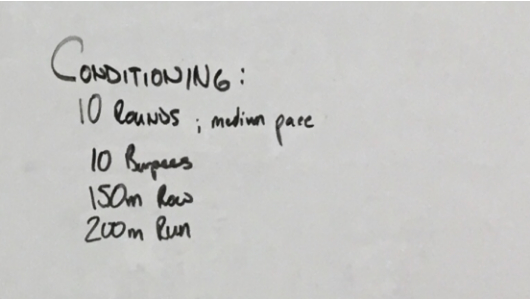 CONDITIONING:
10 ROUNDS ; medium pace
10 Burpees
150m Row
200m Run